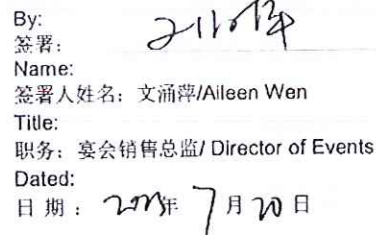 By:
签署：
Name:
签署人姓名：文涌萍/Aileen Wen
Title:
职务：宴会销售总监/ Director of Events
Dated:
日 期 ： 年 7 月 20 日